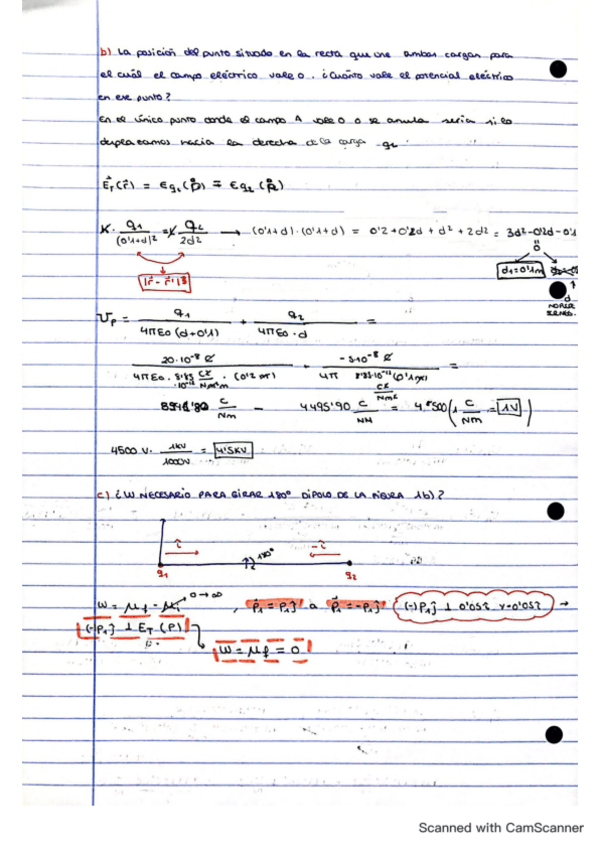 b) La posición del punto situado en la recta que une ambas cargas para
el cuál el campo eléctrico vale 0. ¿Cuánto vale el potencial eléctrico
en ese punto?
En el único punto donde el campo A vale 0 o se anula seria si lo
desplazamos hacia la derecha de la carga -q2
E⃗T(r⃗) = Eq1(p) = Eq2(p)
K · q1/(0'1+d)² = K q2/2d² → (0'1+d)·(0'1+d) = 0'2+0'2d + d² + 2d² = 3d²-0'2d-0'1
0
|r⃗ - r⃗'|3
d1=0'1m
d
NO PUEDE
SER NEG.
Up = q1/4πε0(d+0'1) + q2/4πε0·d =
20·10⁻⁸ C/4πε0 · 8'85 ·10⁻¹² C²/Nm² · (0'2 m) + -5·10⁻⁸ C/4π 8'85·10⁻¹² C²/Nm² (0'1m) =
C/Nm - 4495'90 C/Nm = 4500 (1 C/Nm = 1V)
4500 V · 1KV/1000V = 4'5KV
c) ¿W NECESARIO PARA GIRAR 180º DIPOLO DE LA FIGURA 1b)?
î 180º -î
q1 q2
W = μf - μi 0→∞ , P⃗1 = P1ĵ a P⃗1 = -P1ĵ (-)P1ĵ ⊥ 0'05î r=0'05î →
(-P1ĵ ⊥ ET(P)
W = μf = 0
Scanned with CamScanner